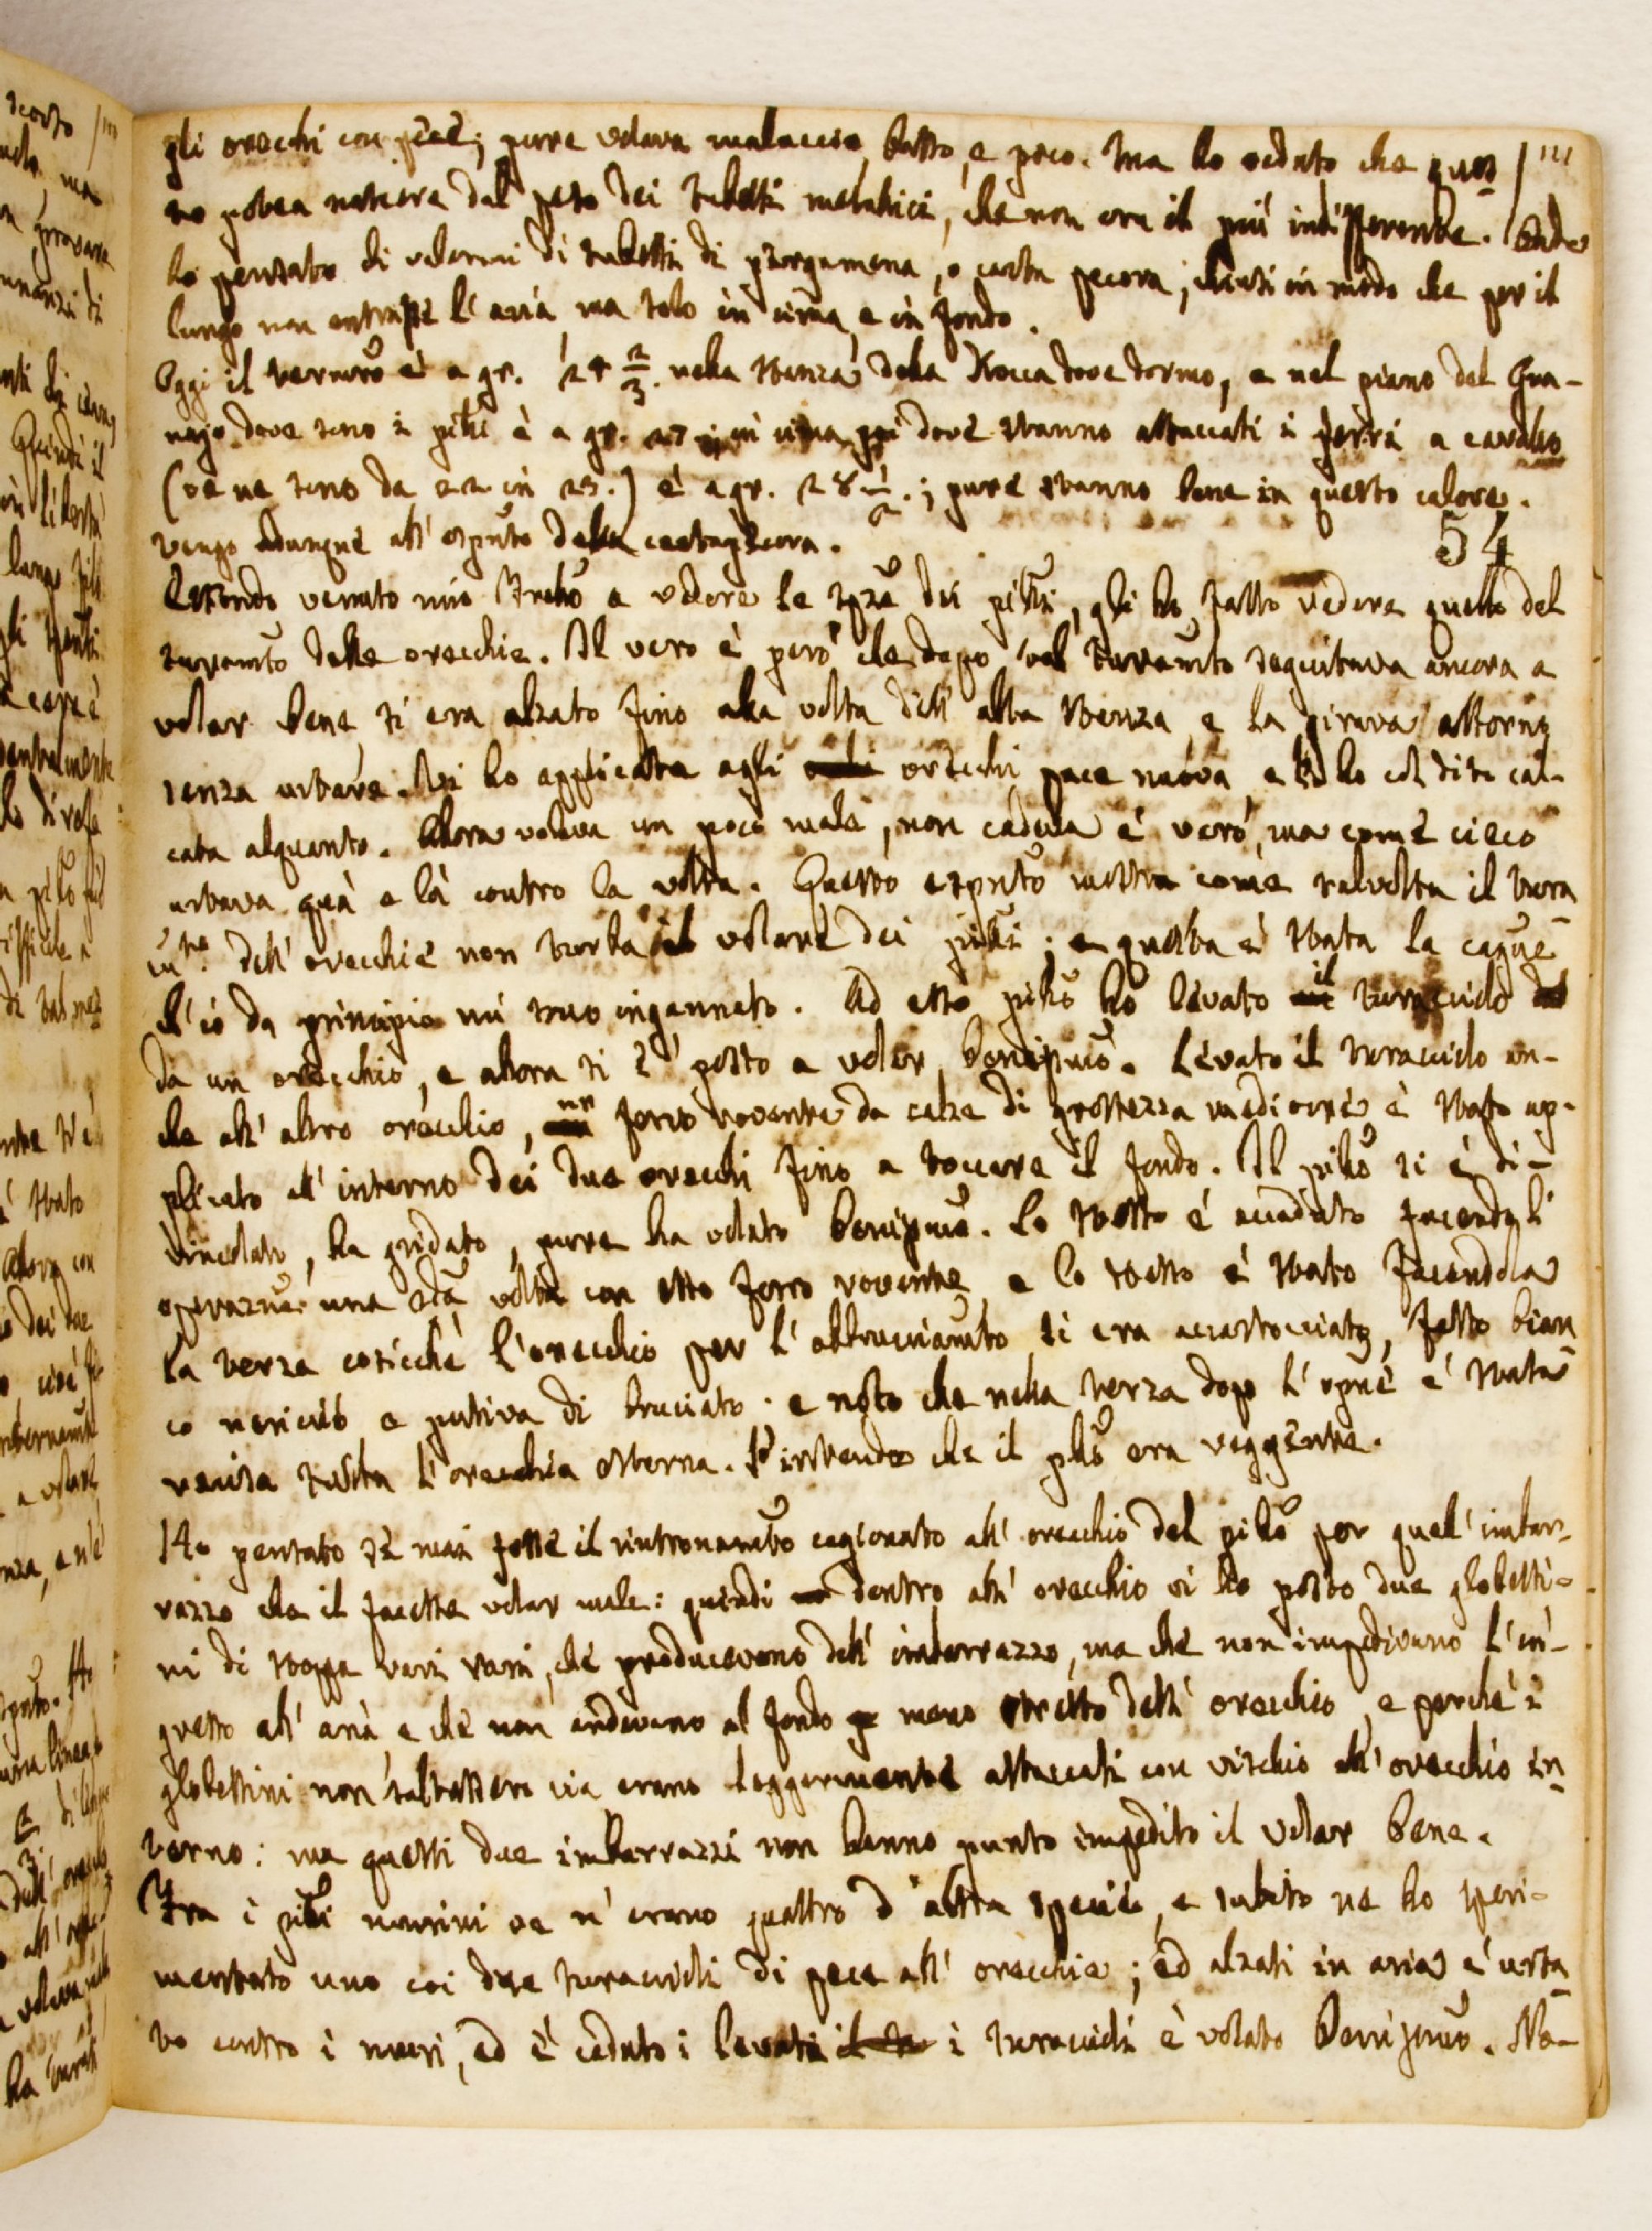 gli orecchi con pece; pure volava malaccio, basso, e poco. Ma ho veduto che ques
to potea nascere dal peso dei tubetti metallici, che non era il più indifferente. Onde
ho pensato di valermi di tubetti di pergamena, o carta pecora, chiusi in modo che per il
lungo non entrasse l'aria ma solo in cima e in fondo.
Oggi il termrō è a gr. 24 2/3. nella stanza della Rocca dove dormo, e nel piano del Gra-
najo dove sono i plli è a gr. 27 in cima poi dove stanno attaccati i ferri a cavallo
(ve ne sono da 22 in 25.) è a gr. 28 1/2.; pure stanno bene in questo calore.
vengo adunque all' esprto della cartapecora.
54
Essendo venuto mio Frello a vedere le spze dei plli, gli ho fatto vedere quella del
turamto delle orecchie. Il vero è però che dopo tal turamto seguitava ancora a
volar bene, si era alzato fino alla volta dell' alta stanza e la girava attorno
senza urtare. Vi ho applicatta agli orecchi pece nuova, e l'ho col dito cal-
cata alquanto. Allora volava un poco male, non cadeva è vero, ma come cieco
urtava quà e là contro la volta. Questo esprto mostra come talvolta il tura
mto dell' orecchie non turba il volare dei plli; e questa è stata la cagne
ch' io da principio mi sono ingannato. Ad esso pllo ho levato il turacciolo
da un orecchio, e allora si è posto a volar benissmo. Levato il turacciolo an-
che all' altro orecchio, un ferro rovente da calze di grossezza mediocre è stato ap-
plicato all' interno dei due orecchi fino a toccare il fondo. Il pllo si è di-
vincolato, ha gridato, pure ha volato benissmo. Lo stesso è accaduto facendo l'
operazne una 2da volta con esso ferro rovente, e lo stesso è stato facendola
la terza cosicchè l'orecchio per l' abbruciamto si era accartocciato, fatto bian
co nericcio e putiva di bruciato. e noto che nella terza dopo l' opne è stata
recisa tutta l' orecchia esterna. S'intende che il pllo era veggente.
Ho pensato se mai fosse il rintronamto cagionato all' orecchio del pllo per quell' imbar-
razzo che il facesse volar male: quindi dentro all' orecchio vi ho posto due globetti-
ni di stoppa rari rari, che producevano dell' imbarrazzo, ma che non impedivano l' in-
gresso all' aria e che non andavano al fondo meno stretto dell' orecchio, e perchè i
globettini non saltassero via erano leggermente attaccati con vischio all' orecchio in
terno: ma questi due imbarrazzi non hanno punto impedito il volar bene.
Fra i plli nurrini ve n' erano quattro d' altra specie, e subito ne ho speri-
mentato uno coi due turaccioli di pece all' orecchie; ed alzati in aria è urta
to contro i muri, ed è caduto; levati i turaccioli è volato benissmo. Na-